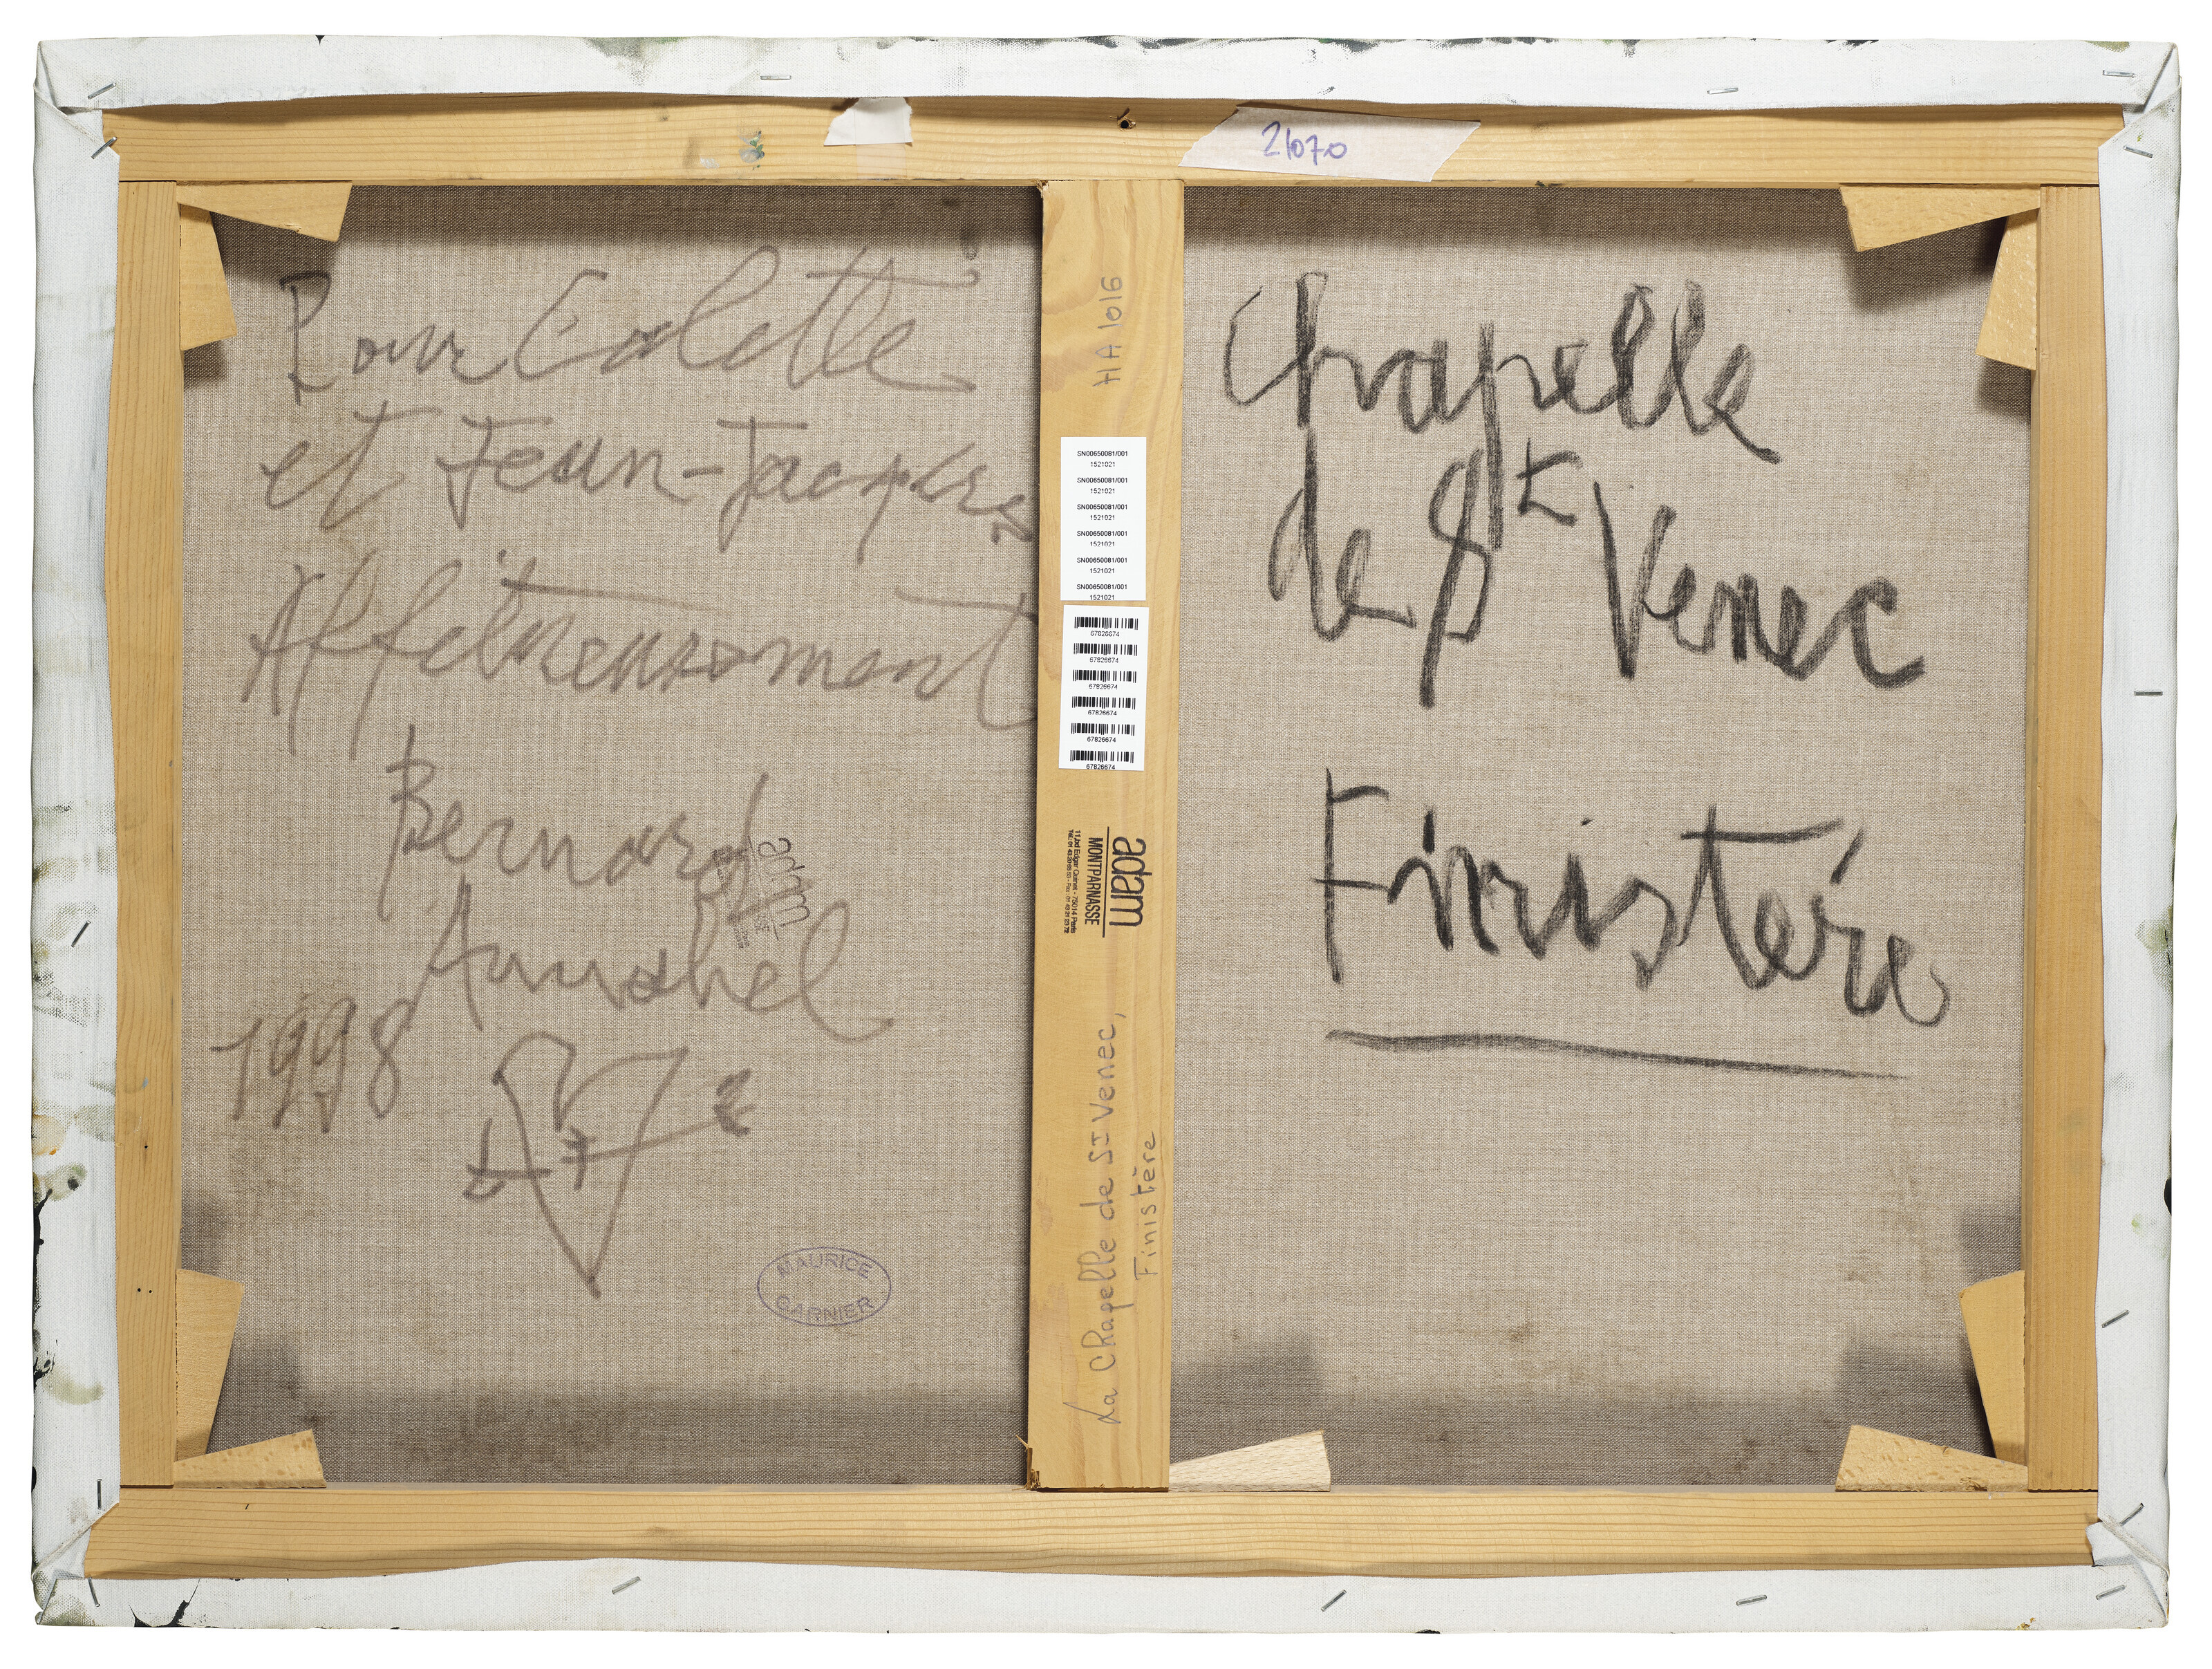 21070
Pour Colette
et Jean-Jacques
Affectueusement
Bernard
Annabel
1998
MAURICE
GARNIER
HA 1016
SN00650081/001
1521021
SN00650081/001
1521021
SN00650081/001
1521021
SN00650081/001
1521021
SN00650081/001
1521021
SN00650081/001
1521021
67826674
67826674
67826674
67826674
67826674
67826674
adam
MONTPARNASSE
11,bd Edgar Quinet - 75014 Paris
adam
La Chapelle de St Venec,
Finistère
Chapelle
de St Venec
Finistére